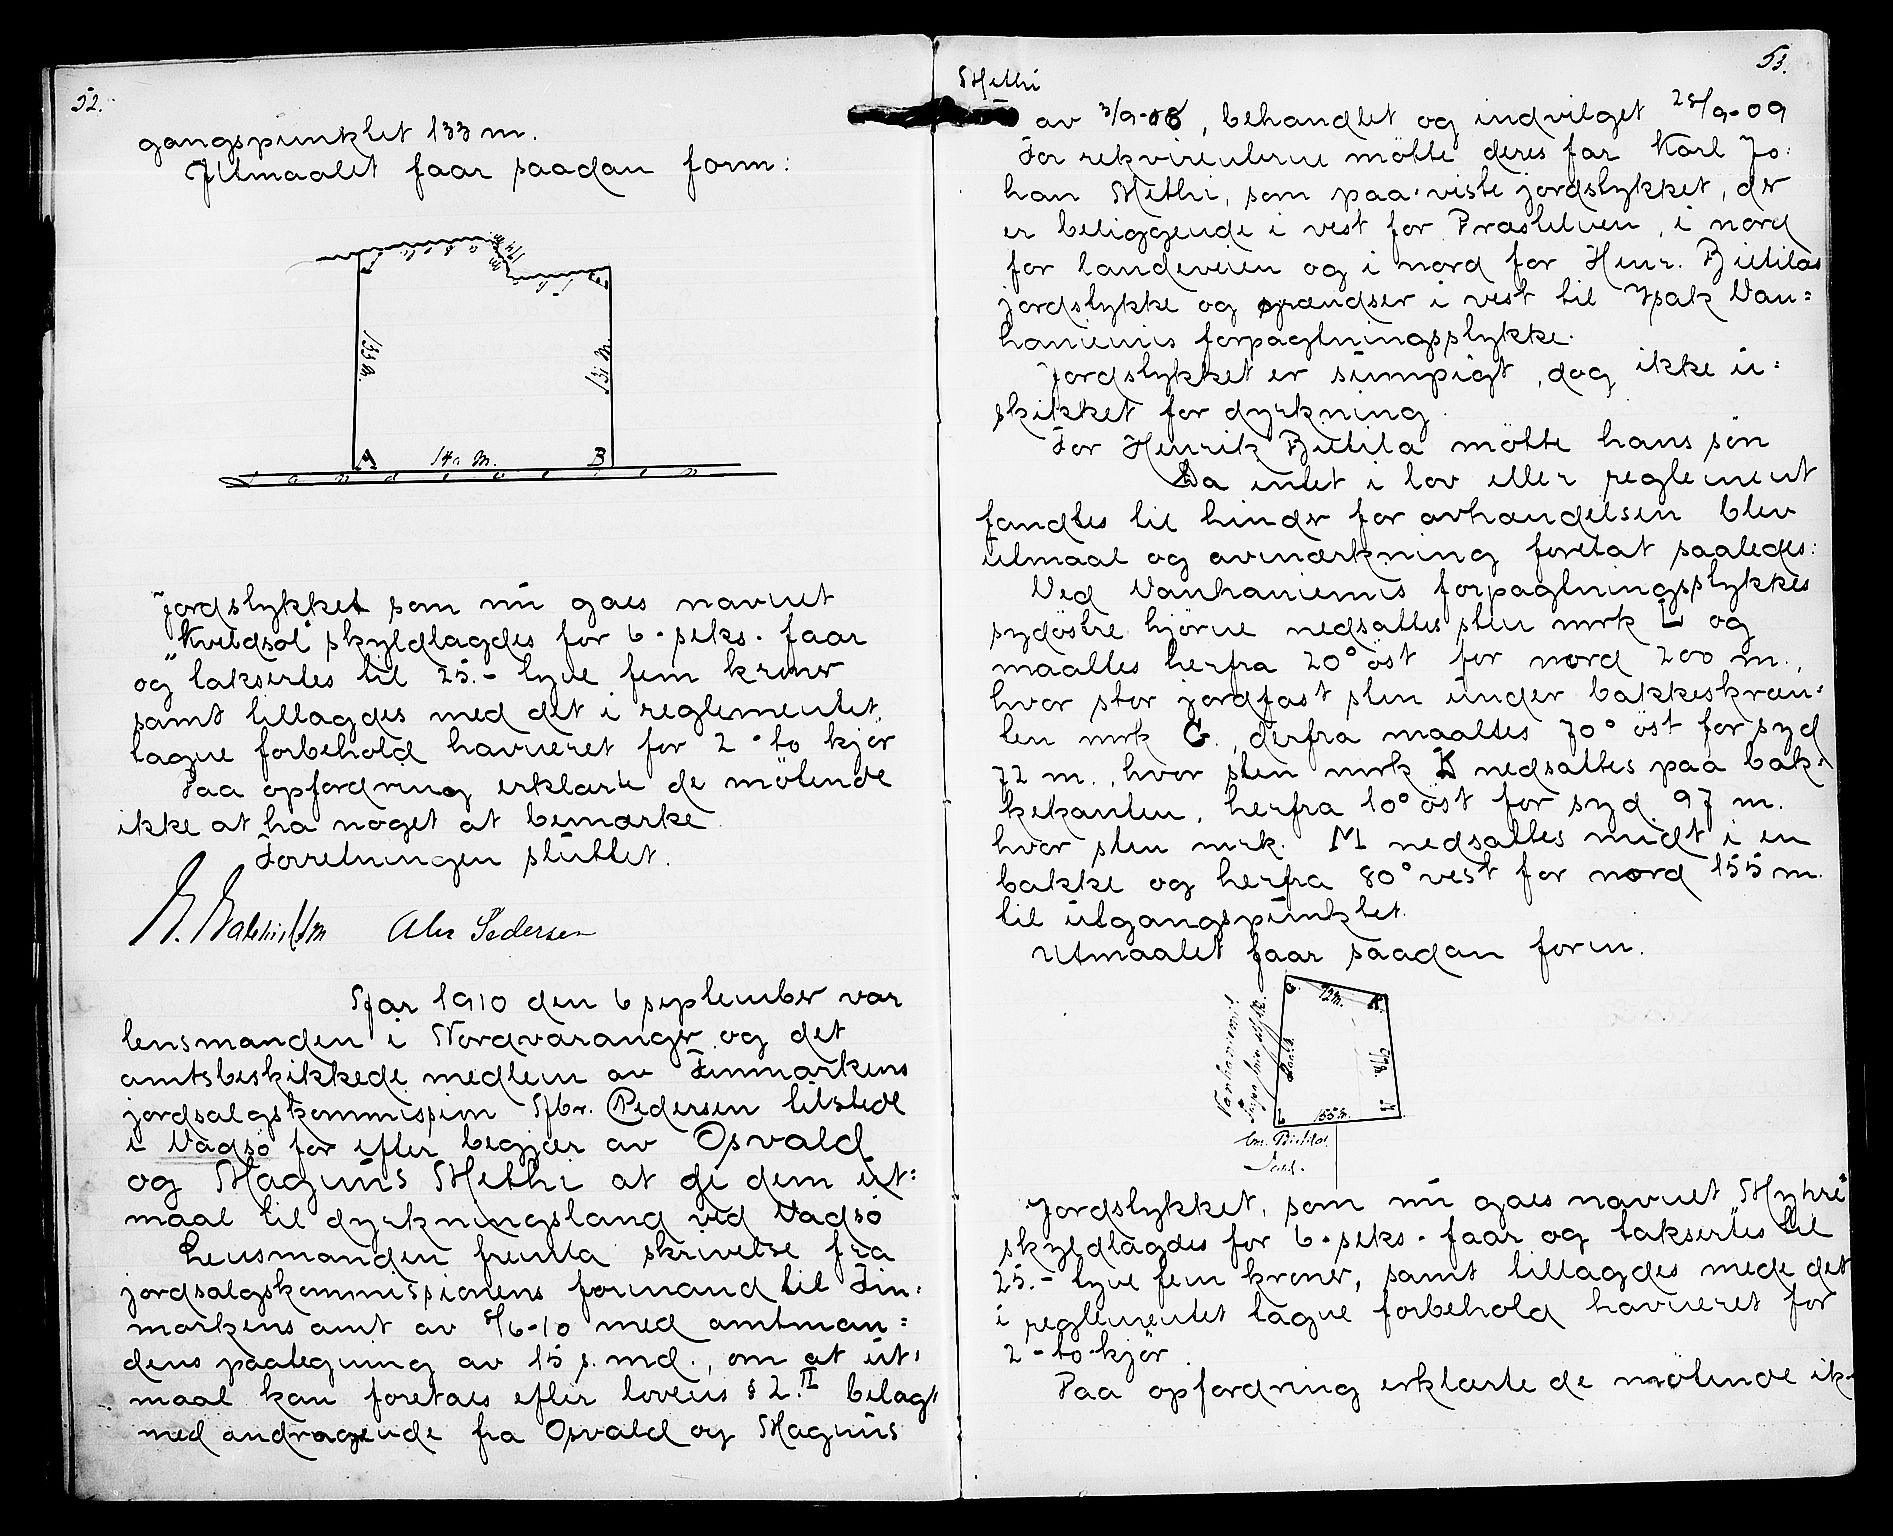 52.
gangspunktet 133 m.
Utmaalet faar saadan form:
133 m.
A 140 m. B
Landeveien
Jordstykket som nu gaes navnet
"Kveldsol" skyldlagdes for 6 - seks - faar
og taksertes til 25.- tyve fem kroner
samt tillagdes med det i reglementet
tagne forbehold havneret for 2 - to kjør
Paa opfordring erklærte de møtende
ikke at ha noget at bemærke.
Forretningen sluttet.
Pedersen
Aar 1910 den 6 september var
lensmanden i Nordvaranger og det
amtsbeskikkede medlem av Finmarkens
jordsalgskommission Hr. Pedersen tilstede
i Vadsø for efter begjær av Osvald
og Magnus Methi at gi dem ut=
maal til dyrkningsland ved Vadsø
Lensmanden fremla skrivelse fra
jordsalgskommissionens formand til Fin=
markens amt av 8/6-10 med amtman=
dens paategning av 15 s. md., om at ut=
maal kan foretaes efter lovens § 2 II belagt
med andragende fra Osvald og Magnus
53.
Methi
av 3/9-08, behandlet og indvilget 28/9-09
For rekvirenterne møtte deres far Karl Jo=
han Methi, som paaviste jordstykket, der
er beliggende i vest for Præstelven, i nord
for landeveien og i nord for Henr. Bietilas
jordstykke og grændser i vest til Isak Van=
haniemis forpagtningsstykke.
Jordstykket er sumpigt, dog ikke u=
skikket for dyrkning.
For Henrik Bietila møtte hans søn
Da intet i lov eller reglement
fandtes til hinder for avhændelsen blev
utmaal og avmærkning foretat saaledes:
Ved Vanhaniemis forpagtningsstykkes
sydøstre hjørne nedsattes sten mrk L og
maaltes herfra 20° øst for nord 200 m.,
hvor stor jordfast sten under bakkeskræn=
ten mrk G., derfra maaltes 70° øst for syd
72 m., hvor sten mrk K nedsattes paa bak=
kekanten, herfra 10° øst for syd 97 m.
hvor sten mrk. M nedsattes midt i en
bakke og herfra 80° vest for nord 155 m.
til utgangspunktet.
Utmaalet faar saadan form.
G. 72 m. K.
97 m.
L 155 m.
Jordstykket, som nu gaes navnet "Myhre"
skyldlagdes for 6 - seks - faar og taksertes til
25.- tyve fem kroner, samt tillagdes mede det
i reglementet tagne forbehold havneret for
2 - to kjør.
Paa opfordring erklærte de møtende ik-